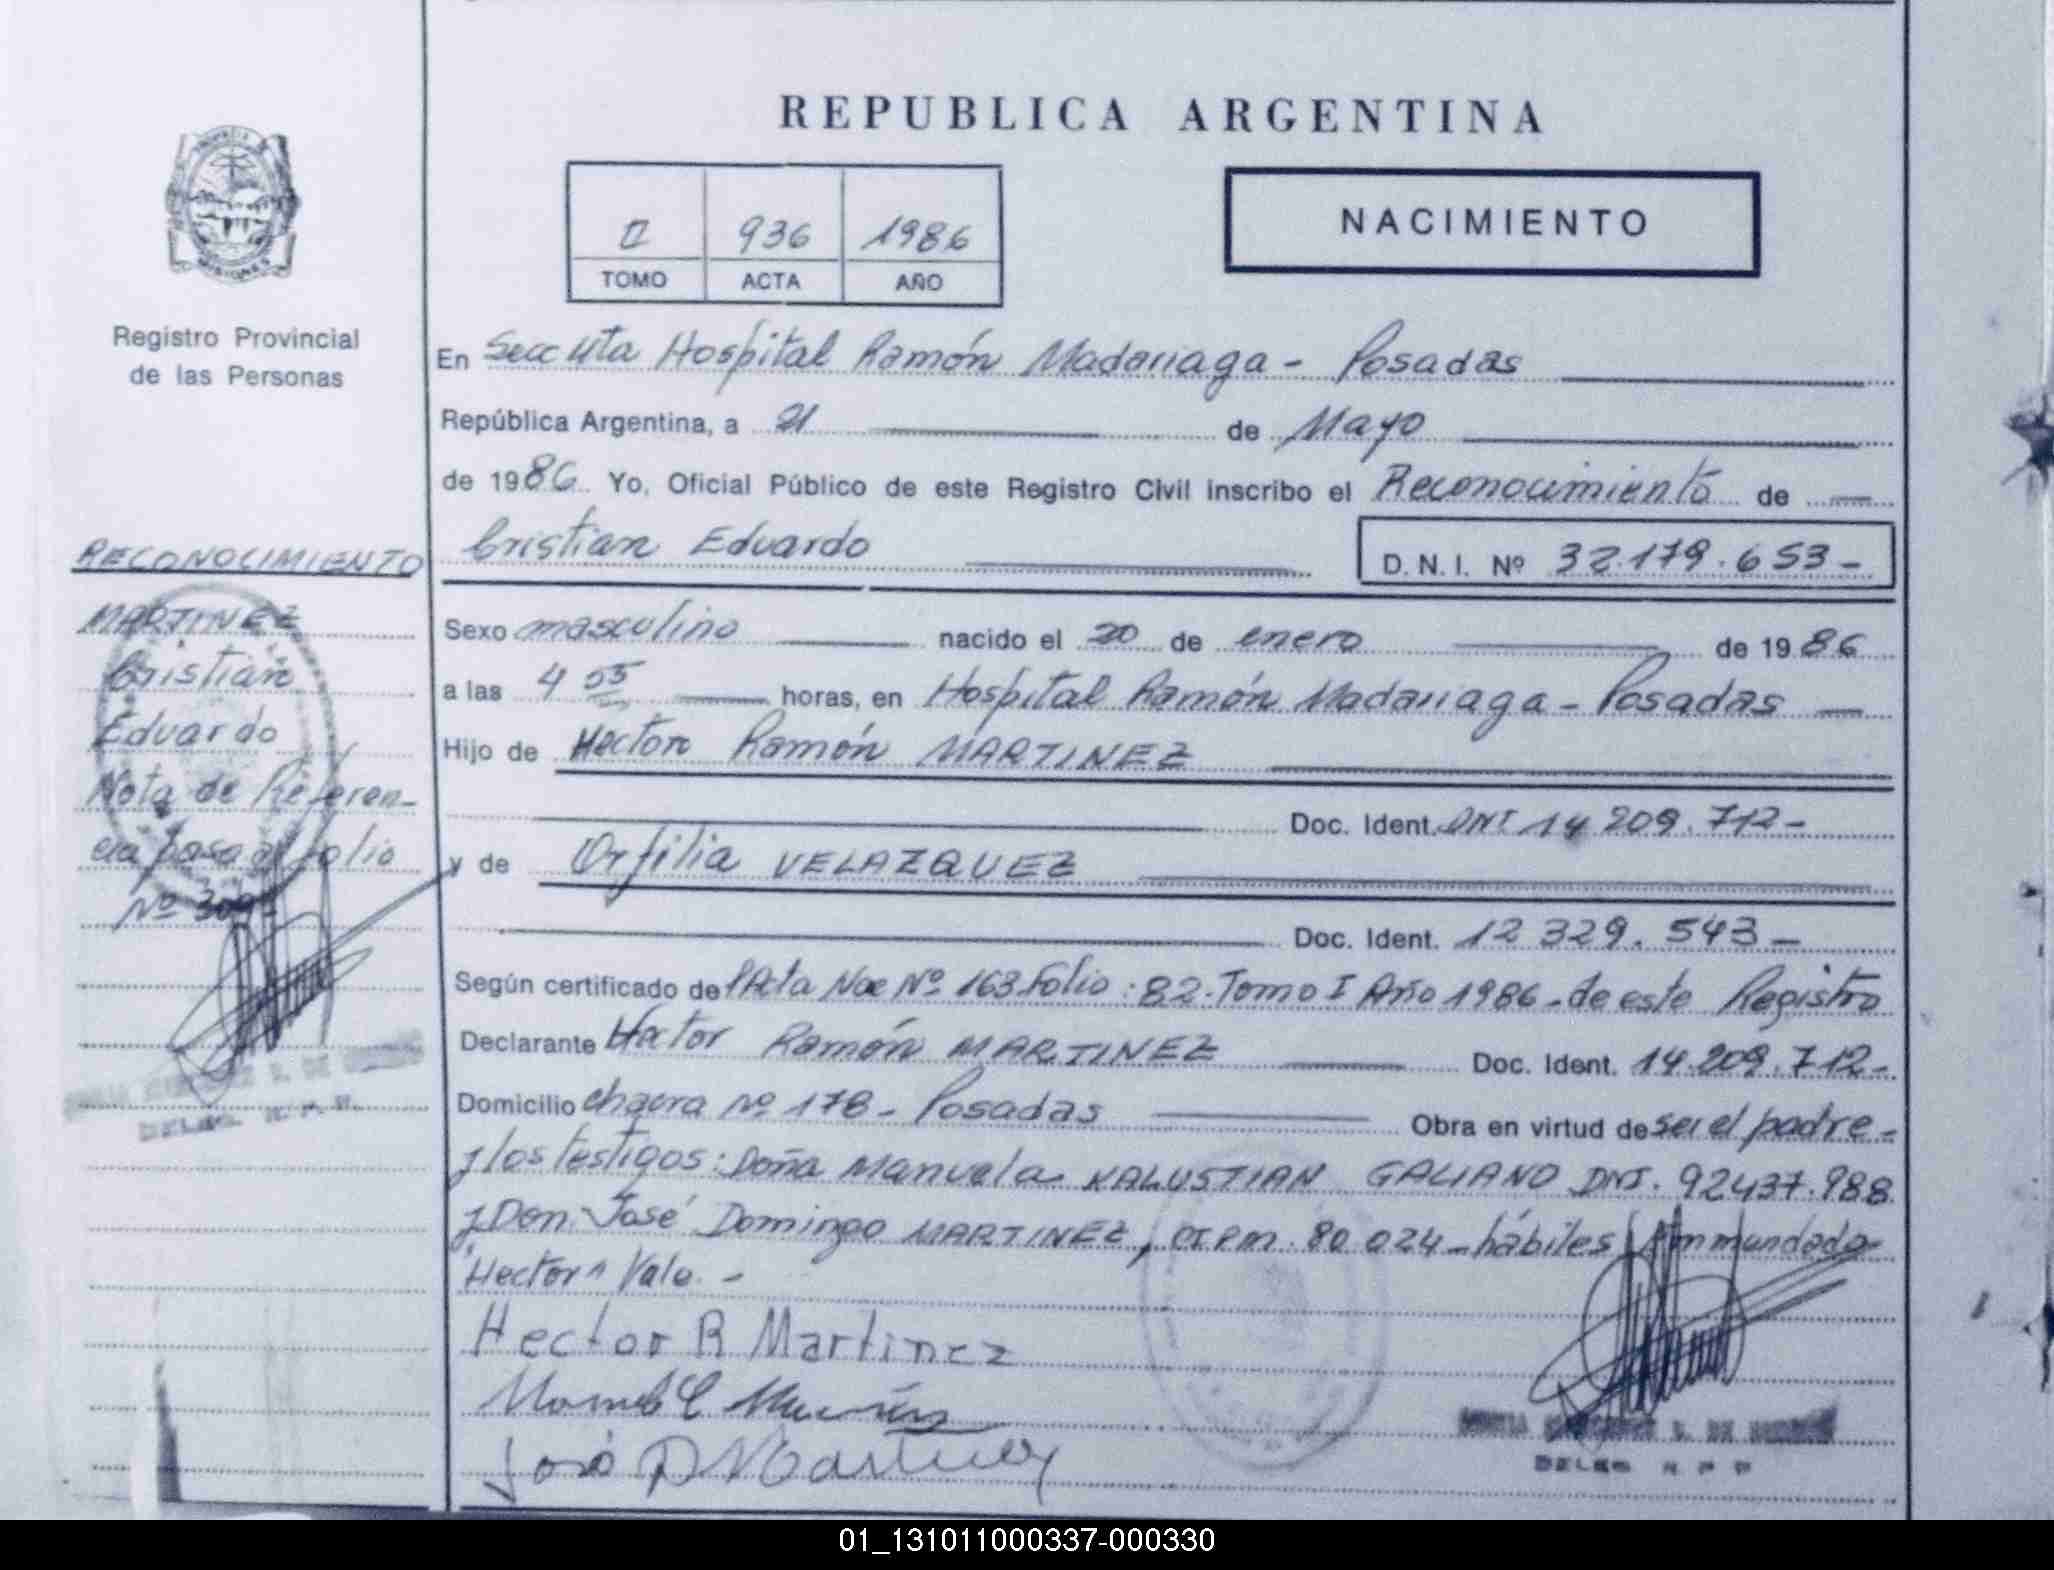 REPUBLICA ARGENTINA
II 936 1986
TOMO ACTA AÑO
NACIMIENTO
Registro Provincial
de las Personas
RECONOCIMIENTO
MARTINEZ
Cristian
Eduardo
Nota de Referen-
cia pasa al folio
Nº
En Hospital Ramón Madariaga - Posadas
República Argentina, a 21 de Mayo
de 1986. Yo, Oficial Público de este Registro Civil inscribo el Reconocimiento de
Cristian Eduardo
D. N. I. Nº 32.179.653-
Sexo masculino nacido el 20 de enero de 1986
a las 4 55 horas, en Hospital Ramón Madariaga - Posadas
Hijo de Hector Ramón MARTINEZ
Doc. Ident. DNI 14 209.712-
y de Orfilia VELAZQUEZ
Doc. Ident. 12 329.543-
Según certificado de Acta Nac Nº 163 Folio: 82. Tomo I Año 1986 - de este Registro
Declarante Hector Ramón MARTINEZ Doc. Ident. 14.209.712-
Domicilio chacra Nº 178 - Posadas Obra en virtud de ser el padre -
y los testigos: Doña Manuela KALUSTIAN GALIANO DNI. 92437.988
y Don José Domingo MARTINEZ, CIPM. 80 024 - hábiles Enmendado
"Hector" Vale. -
Hector R Martinez
José D Martinez
DELEG R P P
01_131011000337-000330